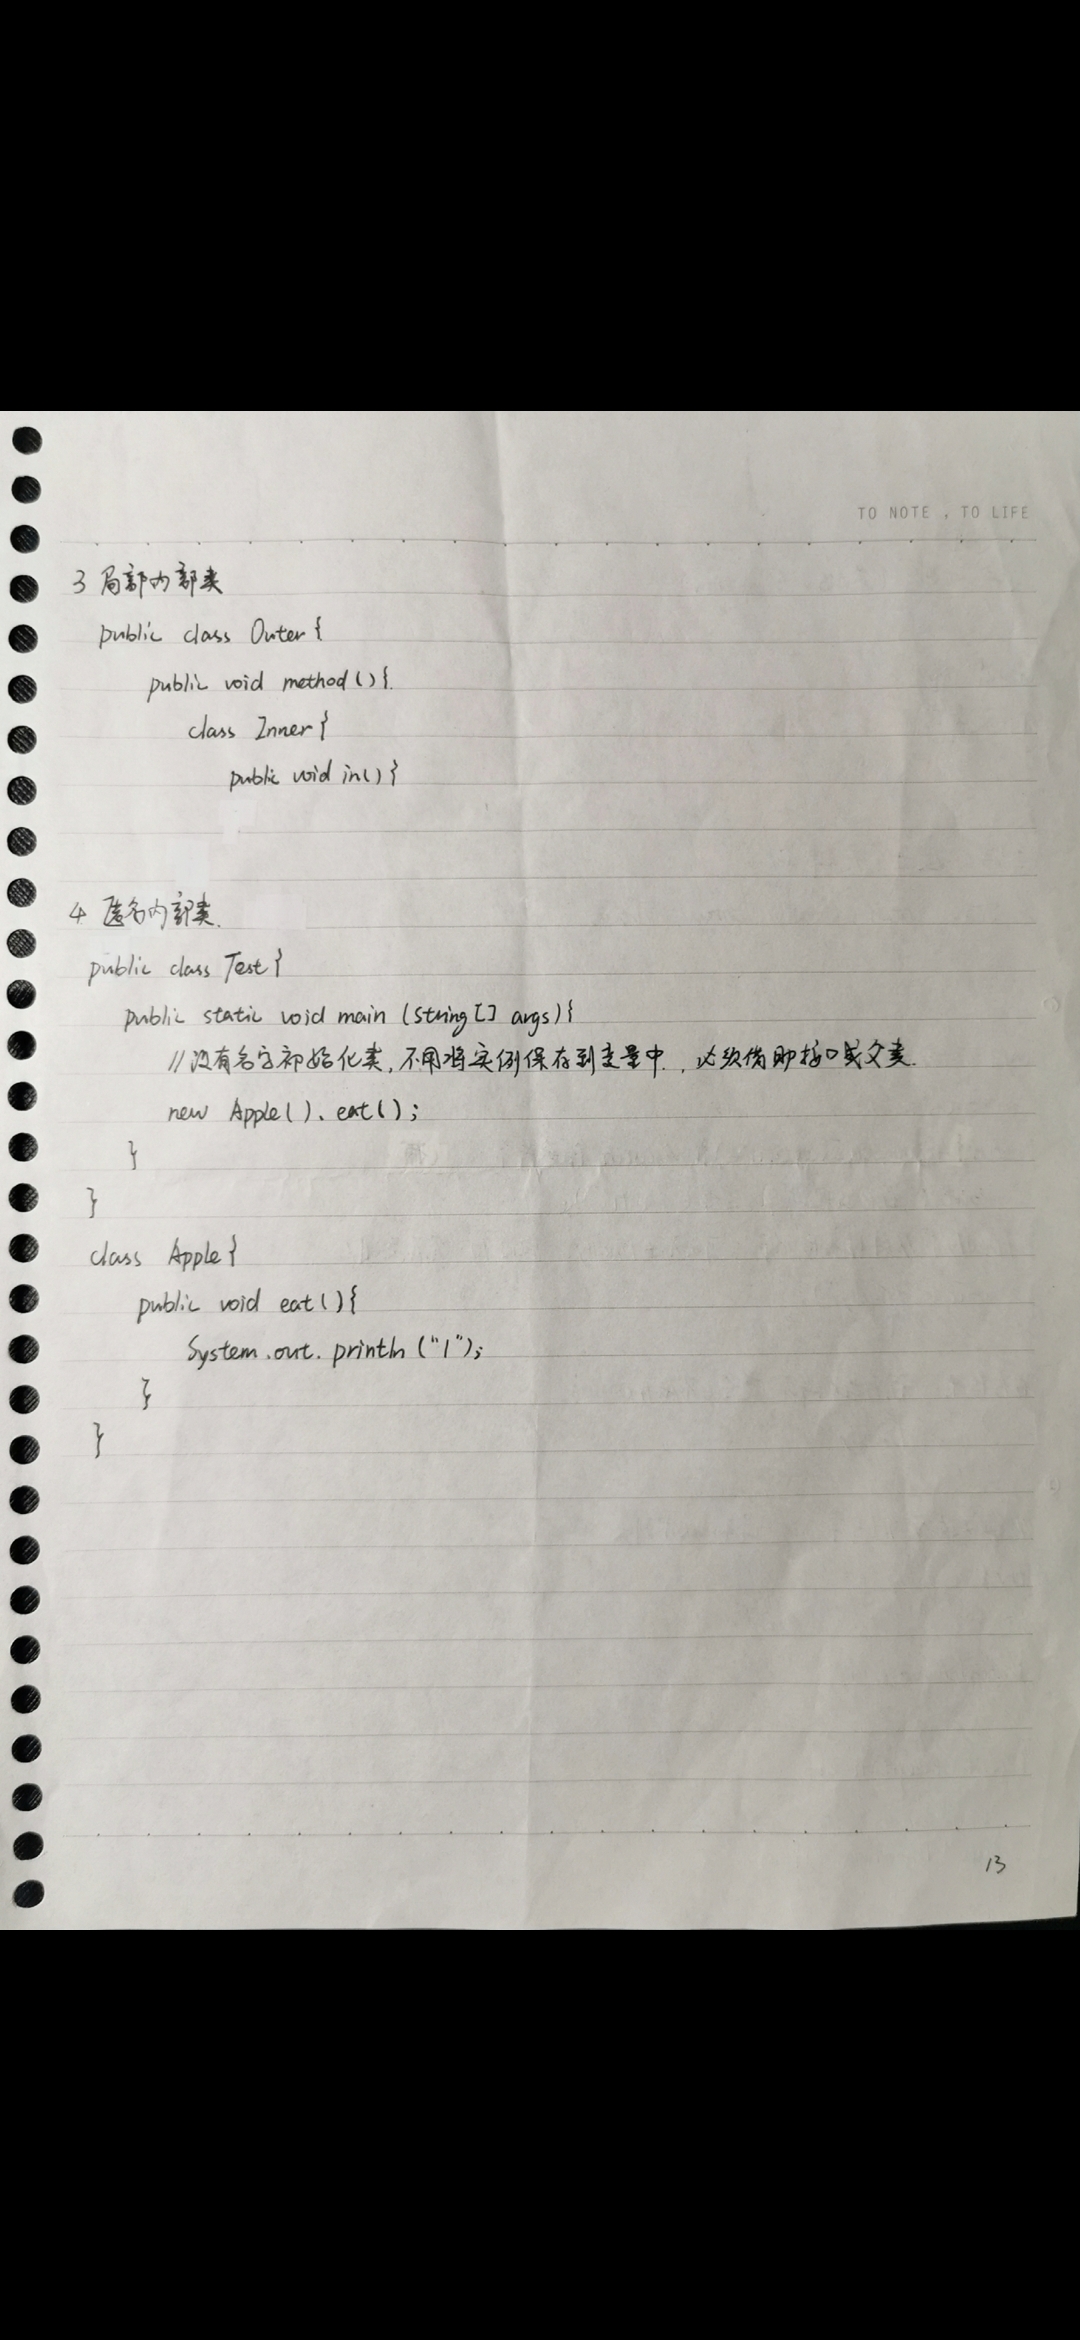 TO NOTE , TO LIFE
3 局部内部类
public class Outer {
public void method () {
class Inner {
public void in() }
4 匿名内部类.
public class Test {
public static void main (String [] args) {
// 没有名字初始化类, 不用将实例保存到变量中. , 必须借助接口或父类.
new Apple(). eat();
}
}
class Apple {
public void eat() {
System.out.println ("1");
}
}
13